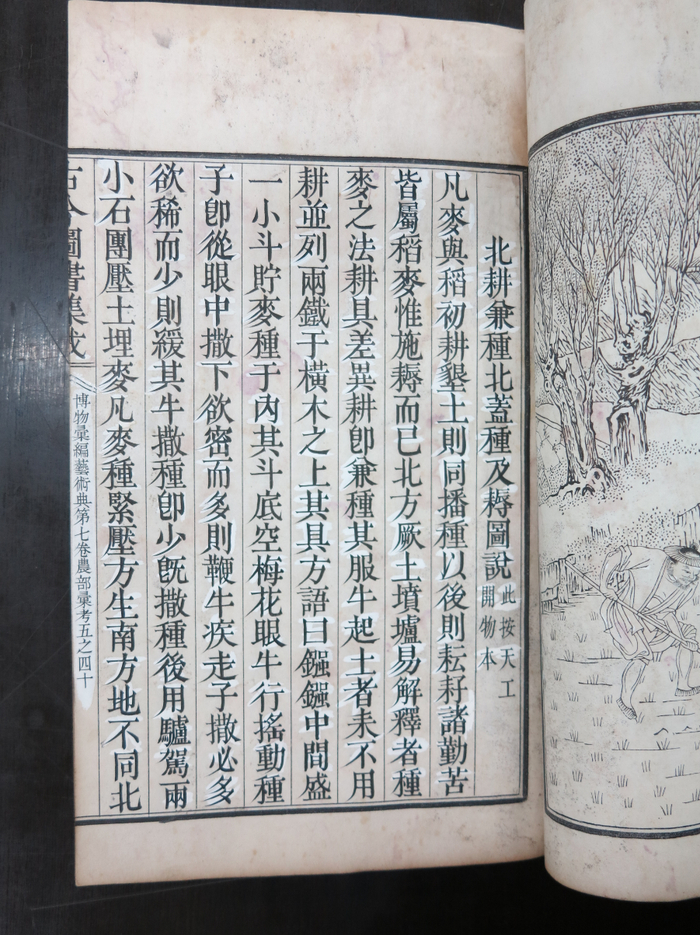 北耕兼種北蓋種及耨圖說此按天工開物本
凡麥與稻初耕墾土則同播種以後則耘耔諸勤苦
皆屬稻麥惟施耨而已北方厥土墳壚易解釋者種
麥之法耕具差異耕卽兼種其服牛起土者耒不用
耕並列兩鐵于橫木之上其具方語曰鏹鏹中間盛
一小斗貯麥種于內其斗底空梅花眼牛行搖動種
子卽從眼中撒下欲密而多則鞭牛疾走子撒必多
欲稀而少則緩其牛撒種卽少旣撒種後用驢駕兩
小石團壓土埋麥凡麥種緊壓方生南方地不同北
古今圖書集成
博物彙編藝術典第七卷農部彙考五之四十